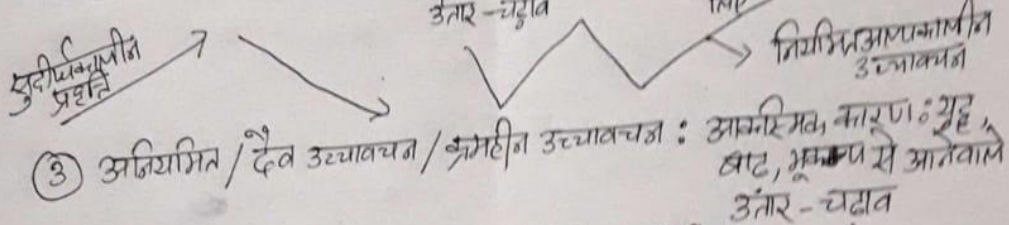 उतार-चढ़ाव
सुदीर्घकालीन
प्रवृत्ति
नियमित अल्पकालीन
उच्चावचन
③ अनियमित / दैव उच्चावचन / क्रमहीन उच्चावचन : आकस्मिक कारण : युद्ध,
बाढ़, भूकम्प से आनेवाले
उतार-चढ़ाव